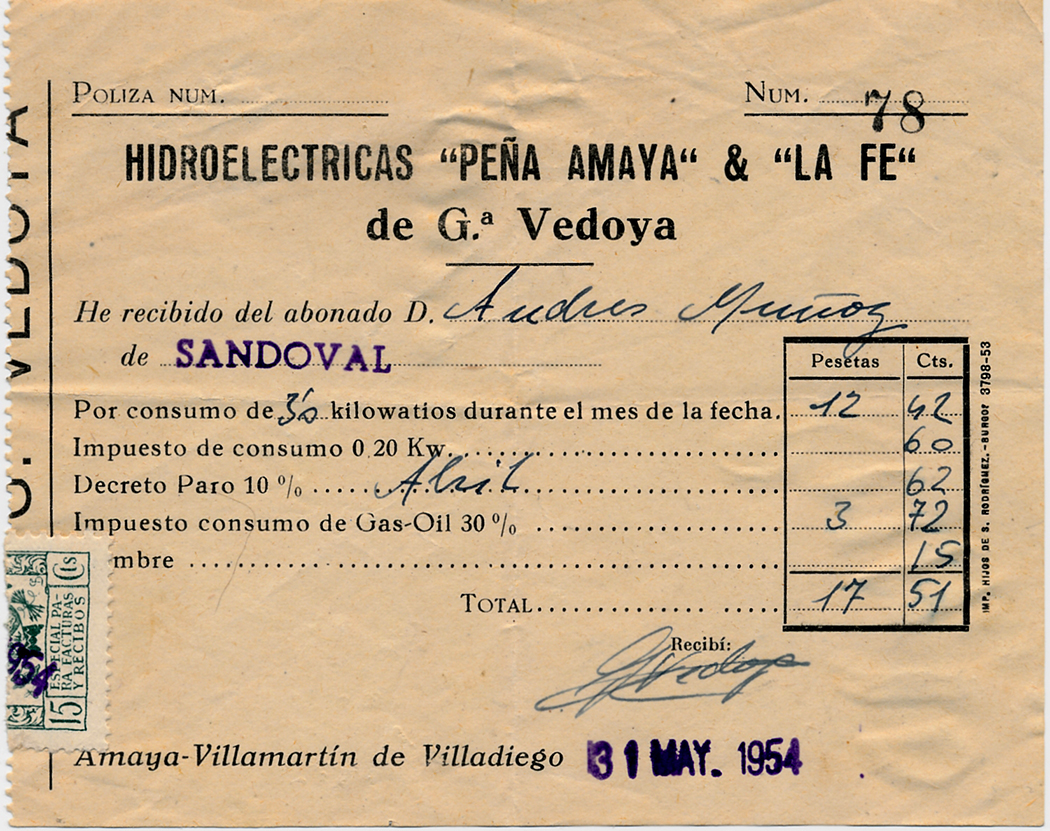 POLIZA NUM. ....................
NUM. .................... 78
HIDROELECTRICAS “PEÑA AMAYA“ & “LA FE“
de G.ª Vedoya
He recibido del abonado D. Andres Muñoz
de SANDOVAL
Pesetas Cts.
Por consumo de 3'o kilowatios durante el mes de la fecha. 12 42
Impuesto de consumo 0.20 Kw. .................... 60
Decreto Paro 10 % ..... Abril .................... 62
Impuesto consumo de Gas-Oil 30 % .................... 3 72
mbre .................... 15
TOTAL .................... 17 51
Recibí:
GVedoya
Amaya-Villamartín de Villadiego 31 MAY. 1954
G. VEDOYA
ESPECIAL PA-
RA FACTURAS
Y RECIBOS
15 Cts
954
IMP. HIJOS DE S. RODRÍGUEZ.-BURGOS 3798-53